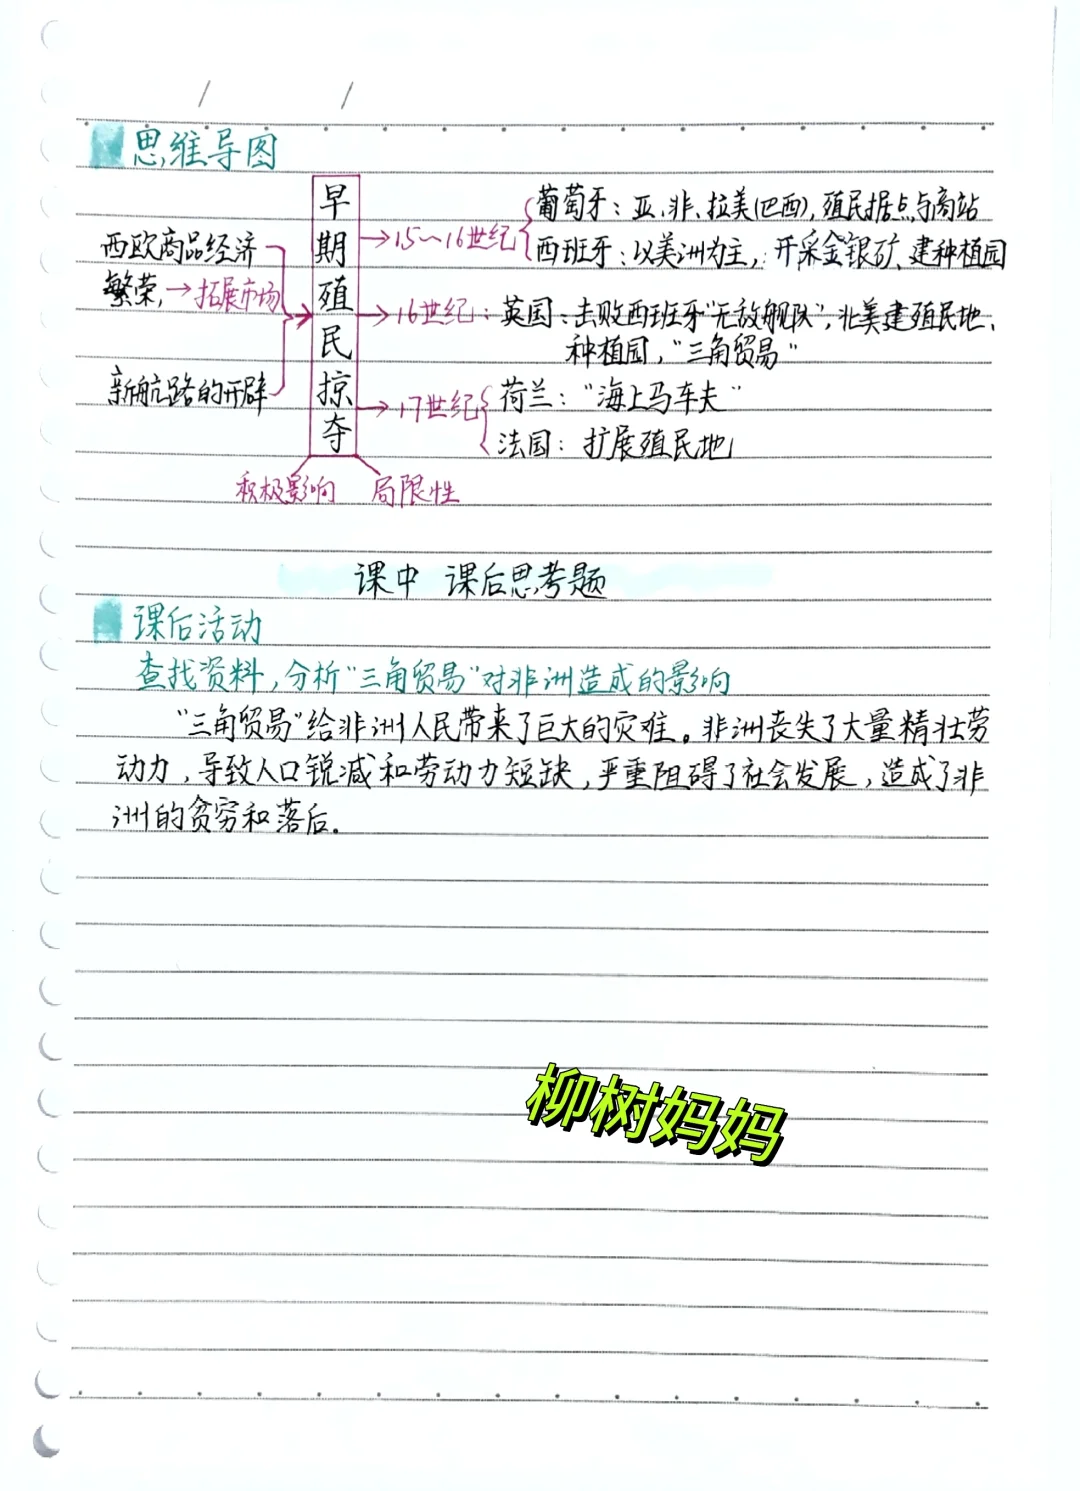 思维导图
西欧商品经济
繁荣,→拓展市场
新航路的开辟
早期殖民掠夺
→15~16世纪
葡萄牙:亚、非、拉美(巴西),殖民据点与商站
西班牙:以美洲为主,开采金银矿、建种植园
→16世纪:英国:击败西班牙“无敌舰队”,北美建殖民地、
种植园,“三角贸易”
→17世纪
荷兰:“海上马车夫”
法国:扩展殖民地
积极影响 局限性
课中 课后思考题
课后活动
查找资料,分析“三角贸易”对非洲造成的影响
“三角贸易”给非洲人民带来了巨大的灾难。非洲丧失了大量精壮劳
动力,导致人口锐减和劳动力短缺,严重阻碍了社会发展,造成了非
洲的贫穷和落后.
柳树妈妈